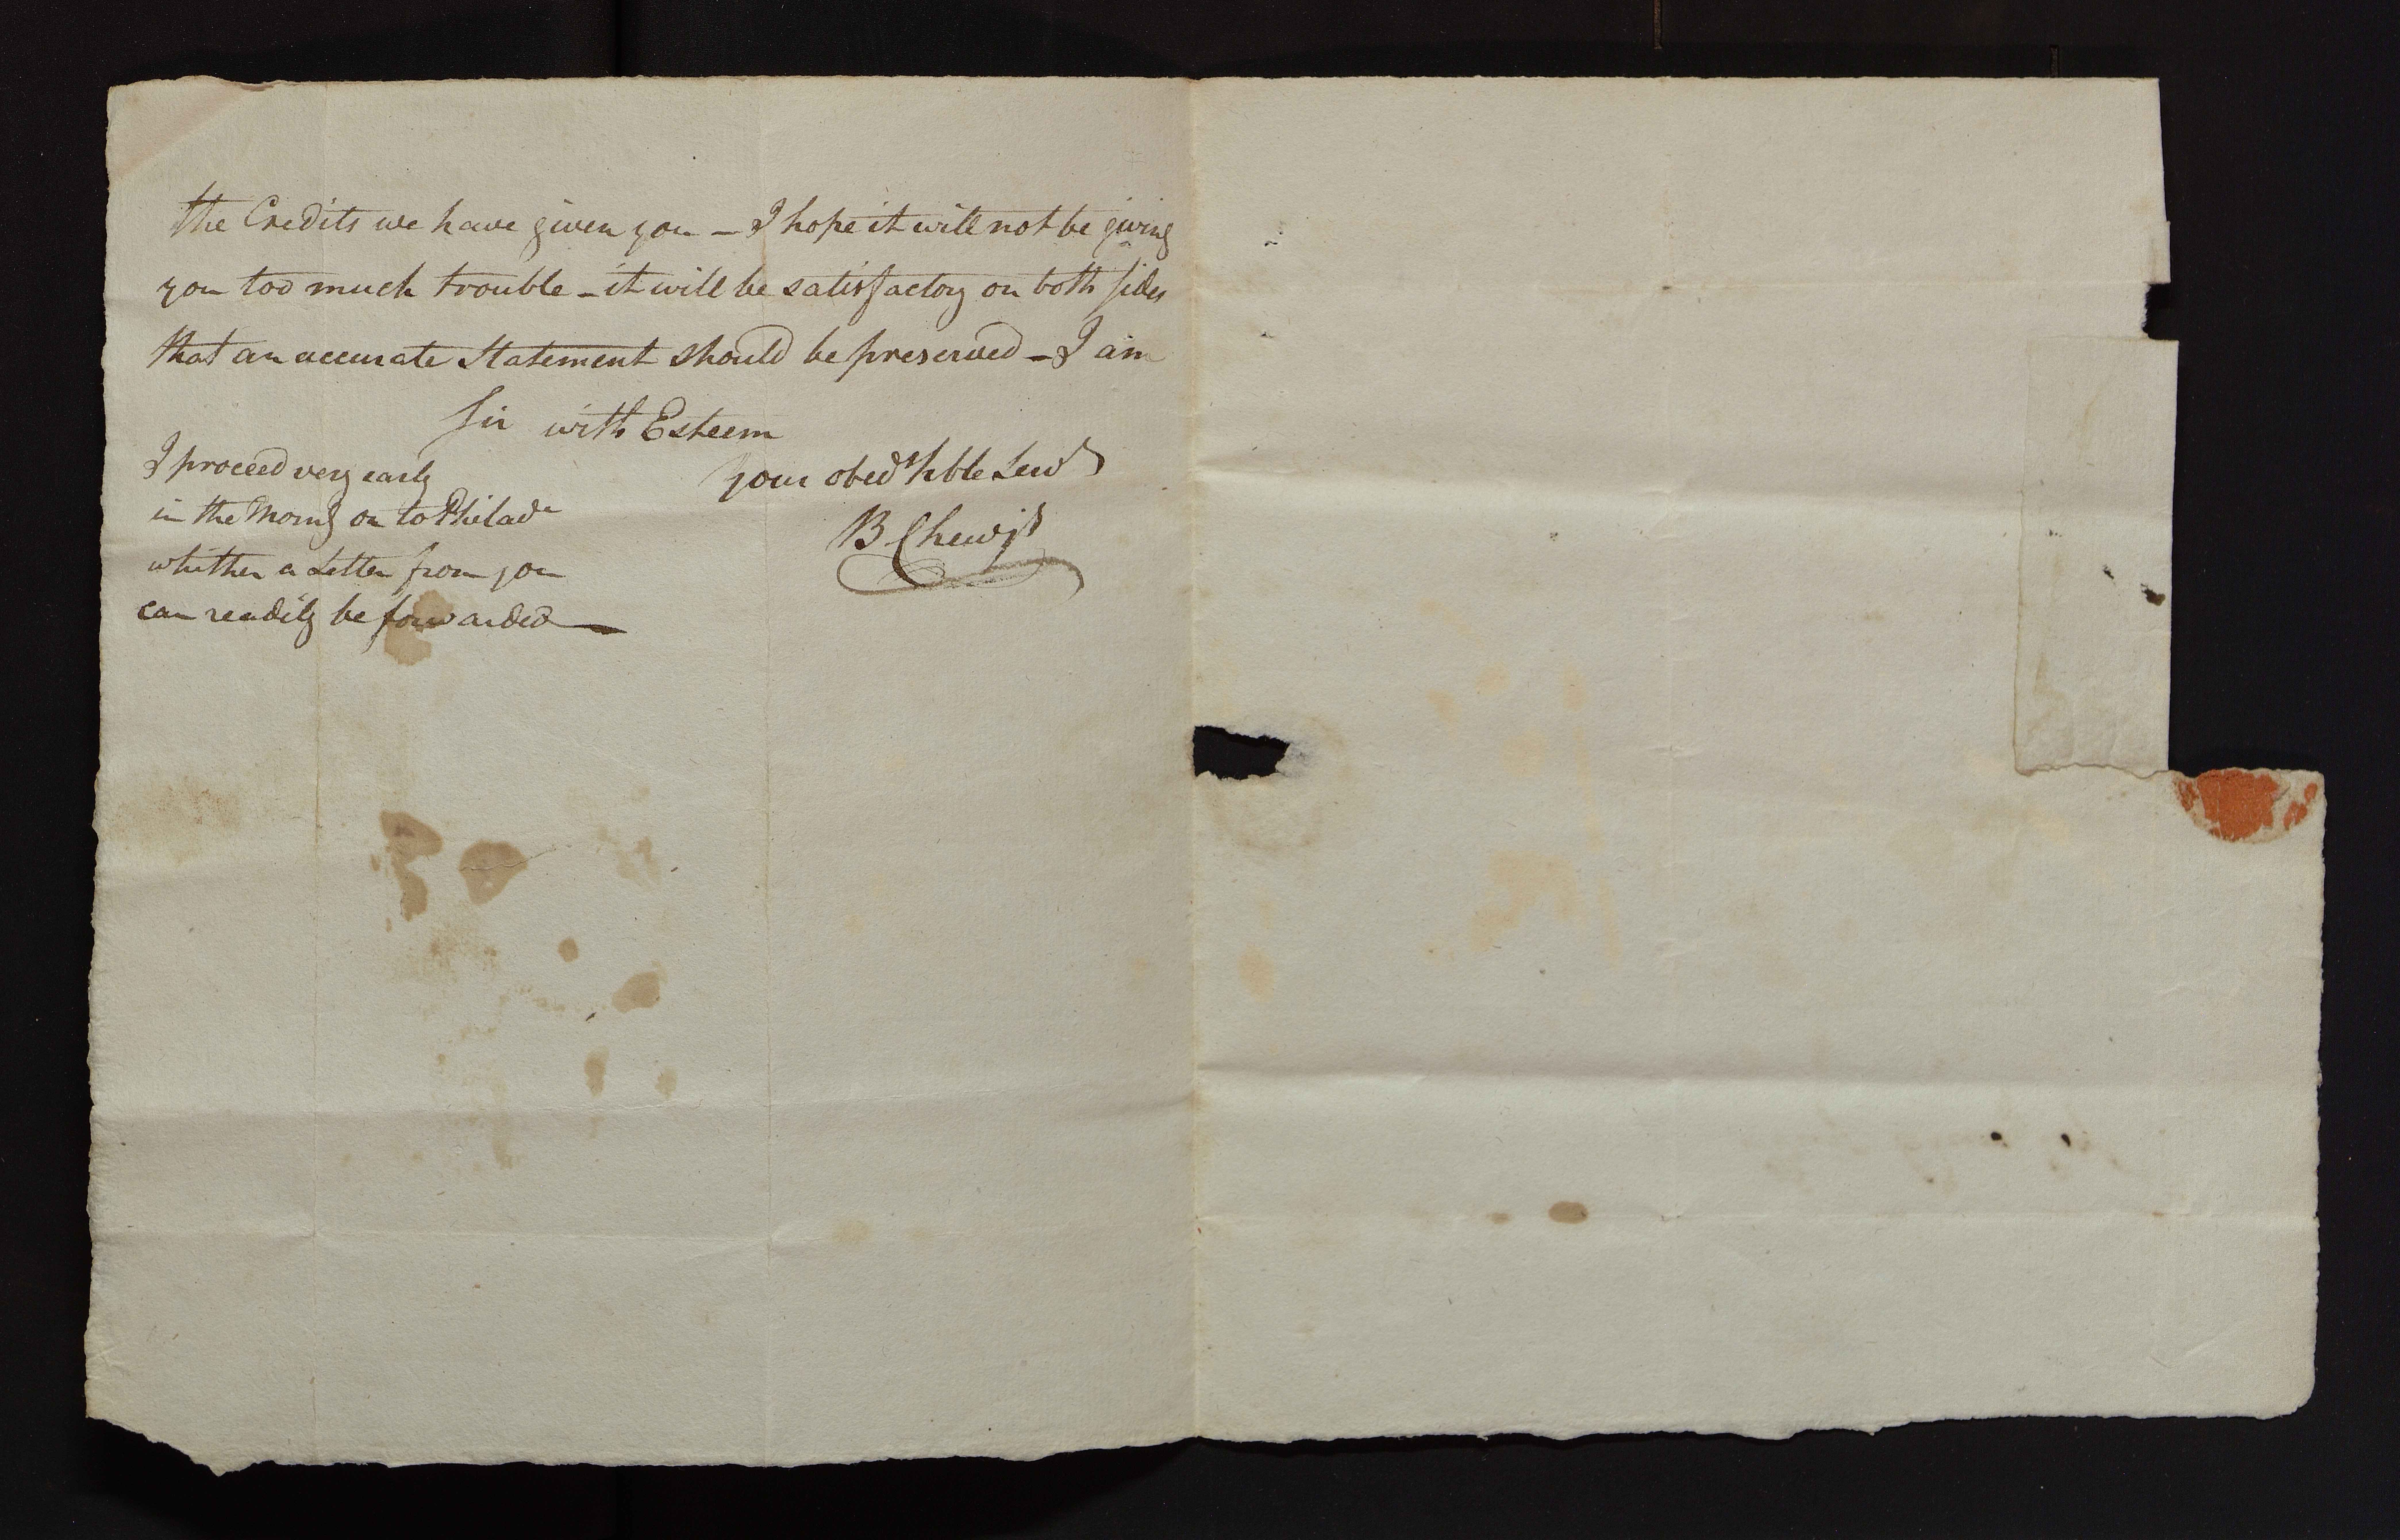 the Credits we have given you – I hope it will not be giving
you too much trouble – it will be satisfactory on both sides
that an accurate Statement should be preserved – I am
Sir with Esteem
your obedt hble Servt
B Chew jr
I proceed very early
in the Morng on to Philada
whither a Letter from you
can readily be forwarded —